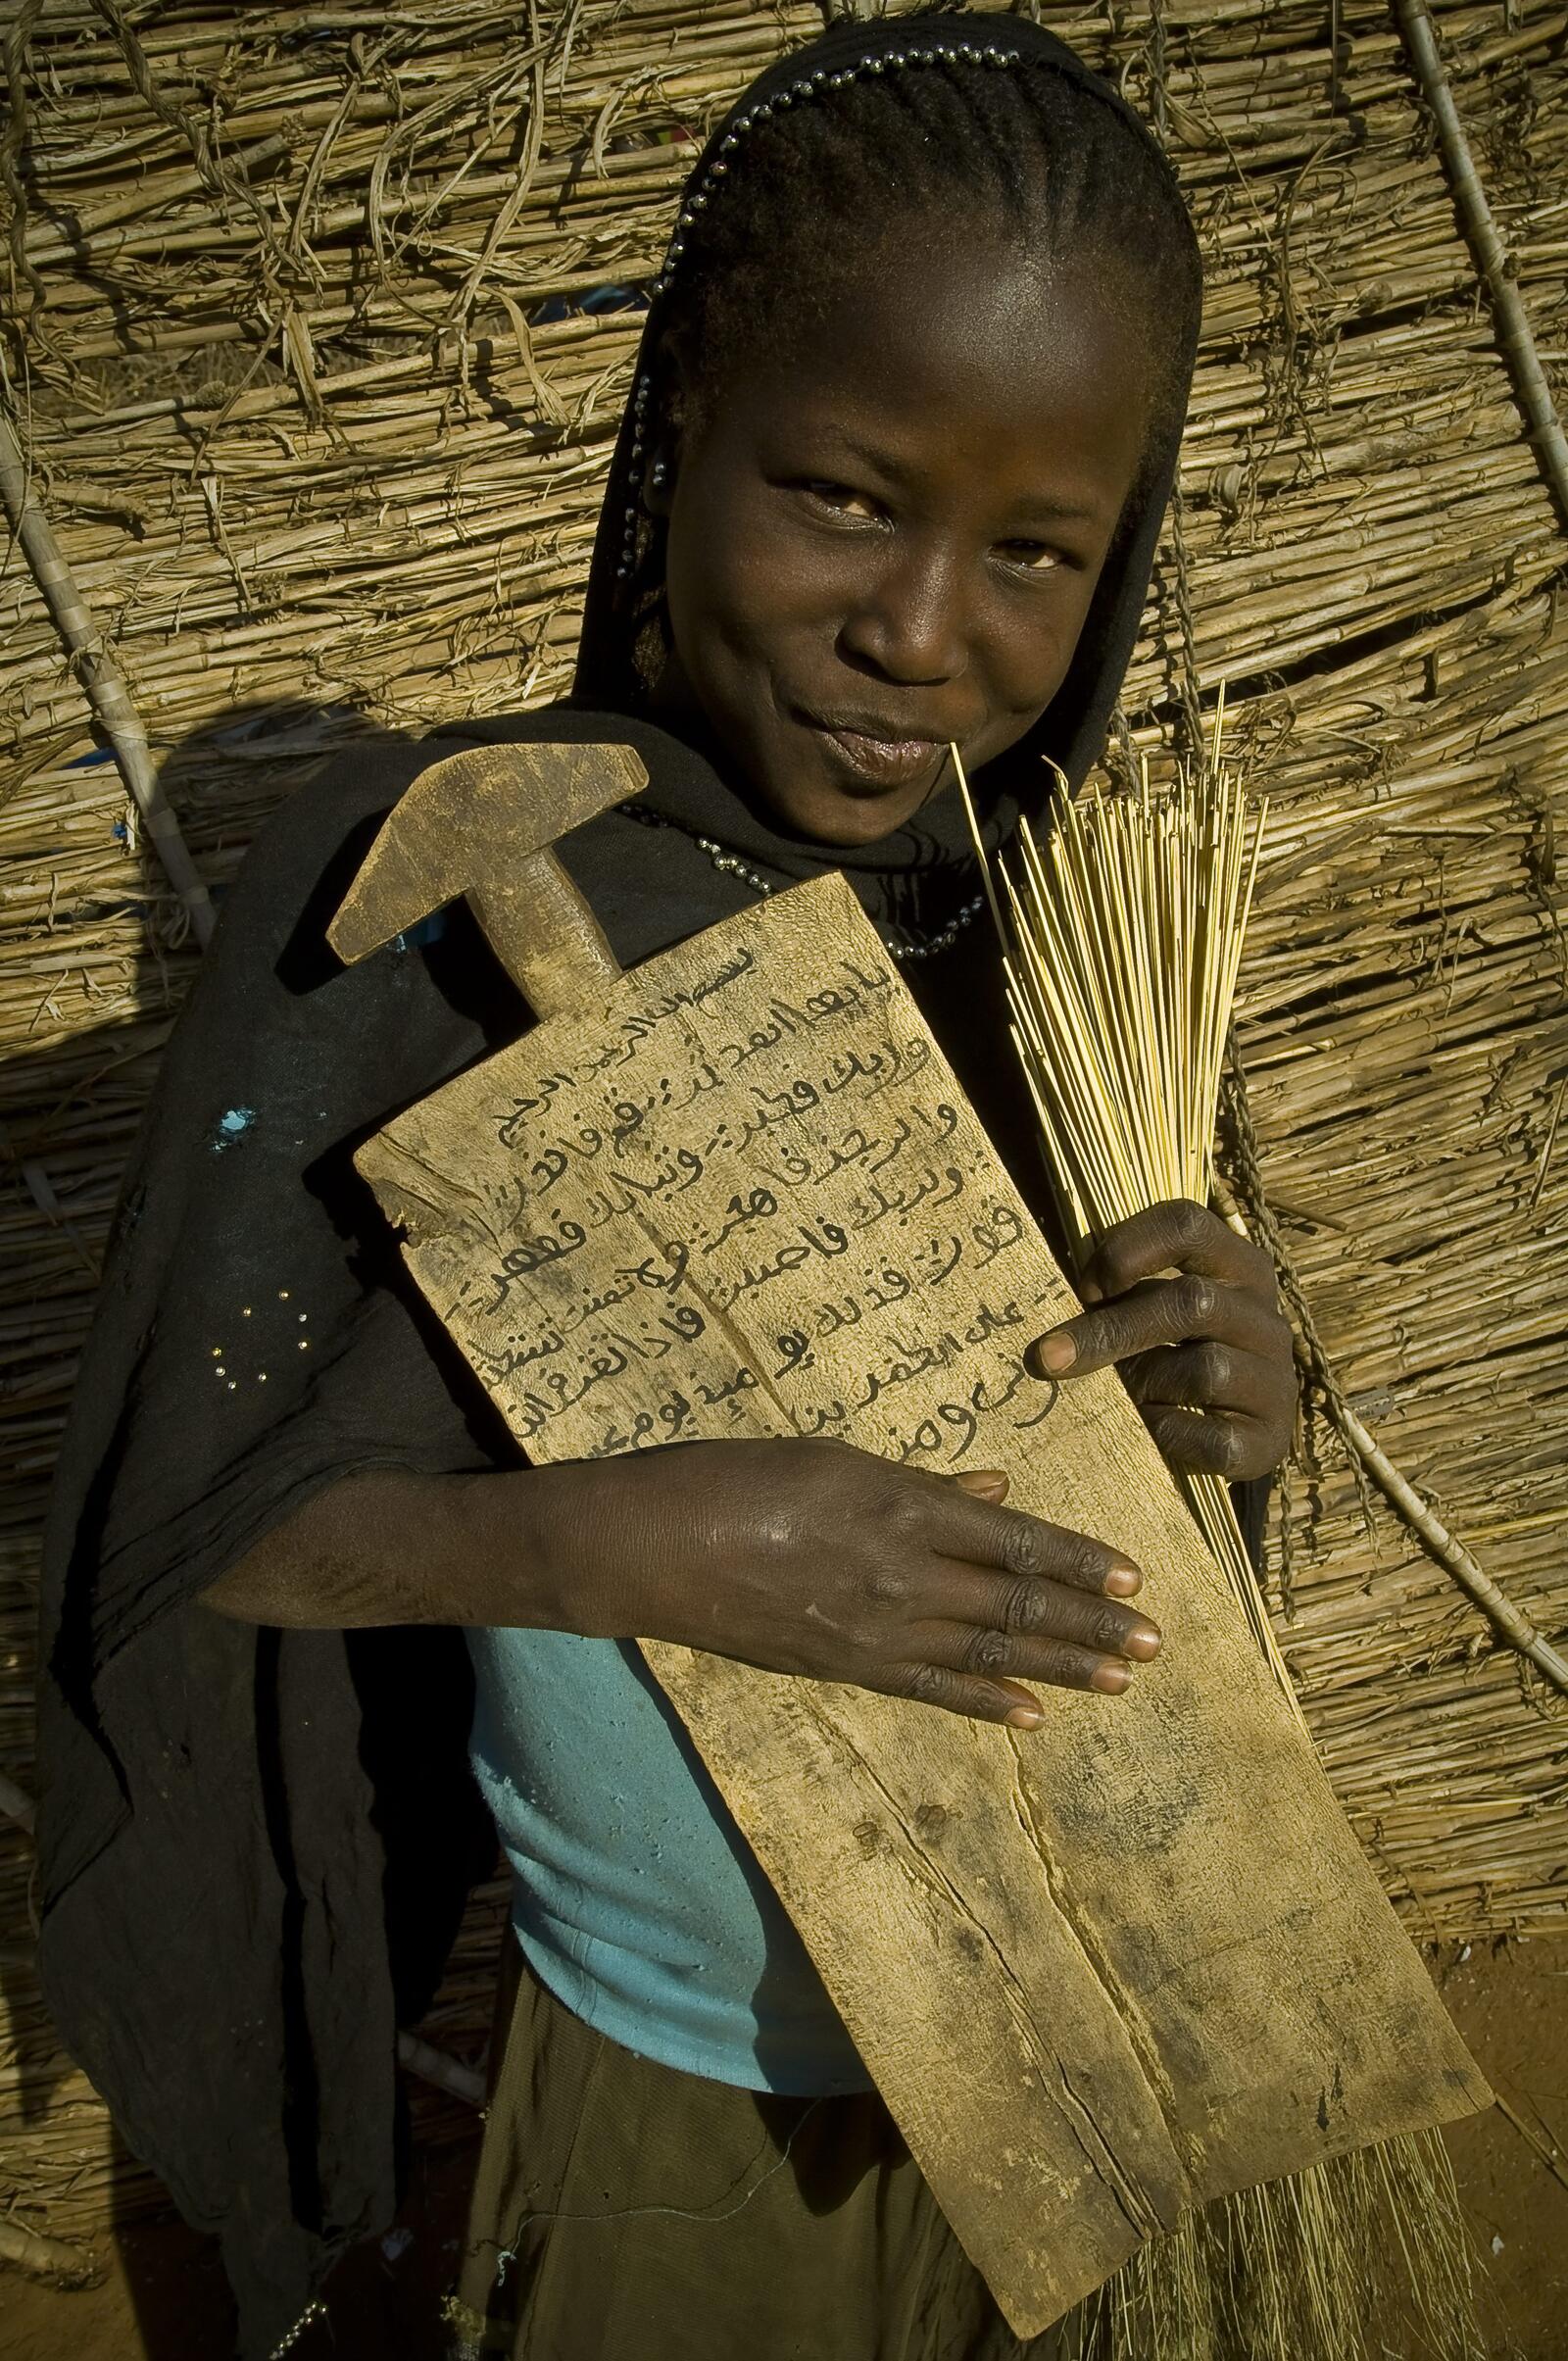 بسم الله الرحمن الرحيم
يايها المدثر قم فانذر
وربك فكبر وثيابك فطهر
والرجز فاهجر ولا تمنن تستكثر
ولربك فاصبر فاذا نقر في النا
قور فذلك يومئذ يوم
على الكفرين
ومن